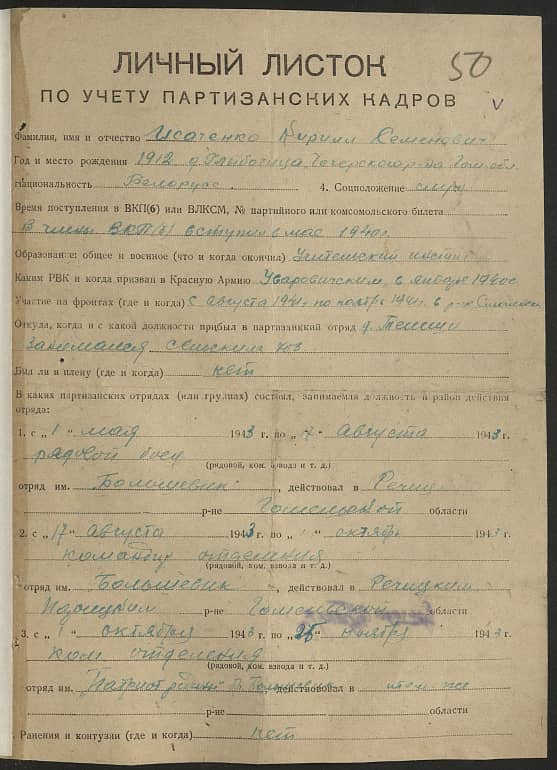 50
ЛИЧНЫЙ ЛИСТОК
ПО УЧЕТУ ПАРТИЗАНСКИХ КАДРОВ
v
Фамилия, имя и отчество Исаченко Кирилл Семенович
Год и место рождения 1912 д. Глыбочица, Чечерского р-на Гом. обл.
Национальность Белорус. 4. Соцположение служ
Время поступления в ВКП(б) или ВЛКСМ, № партийного или комсомольского билета
В члены ВКП(б) вступил в мае 1940 г.
Образование: общее и военное (что и когда окончил) Учительский инстит
Каким РВК и когда призван в Красную Армию Уваровичским, в январе 1940 г
Участие на фронтах (где и когда) С августа 1941 г. по ноябрь 1941 г. в р-не Смоленска
Откуда, когда и с какой должности прибыл в партизанкий отряд д.
занимался сельским хоз
Был ли в плену (где и когда) нет
В каких партизанских отрядах (или группах) состоял, занимаемая должность и район действия
отряда:
1. с „1“ мая 1943 г. по „ “ августа 1943 г.
рядовой боец
(рядовой, ком. взвода и т. д.)
отряд им. „Большевик“, действовал в Речиц
р-не Гомельской области
2. с „17“ августа 1943 г. по „ “ октябрь 1943 г.
командир отделения
(рядовой, ком. взвода и т. д.)
отряд им. Большевик, действовал в Речицким
р-не Гомельской области
3. с „1“ октября 1943 г. по „26“ ноября 1943 г.
ком отделения
(рядовой, ком. взвода и т. д.)
отряд им. „Патриот родины“ Большевик действововал в том же
р-не области
Ранения и контузии (где и когда) нет